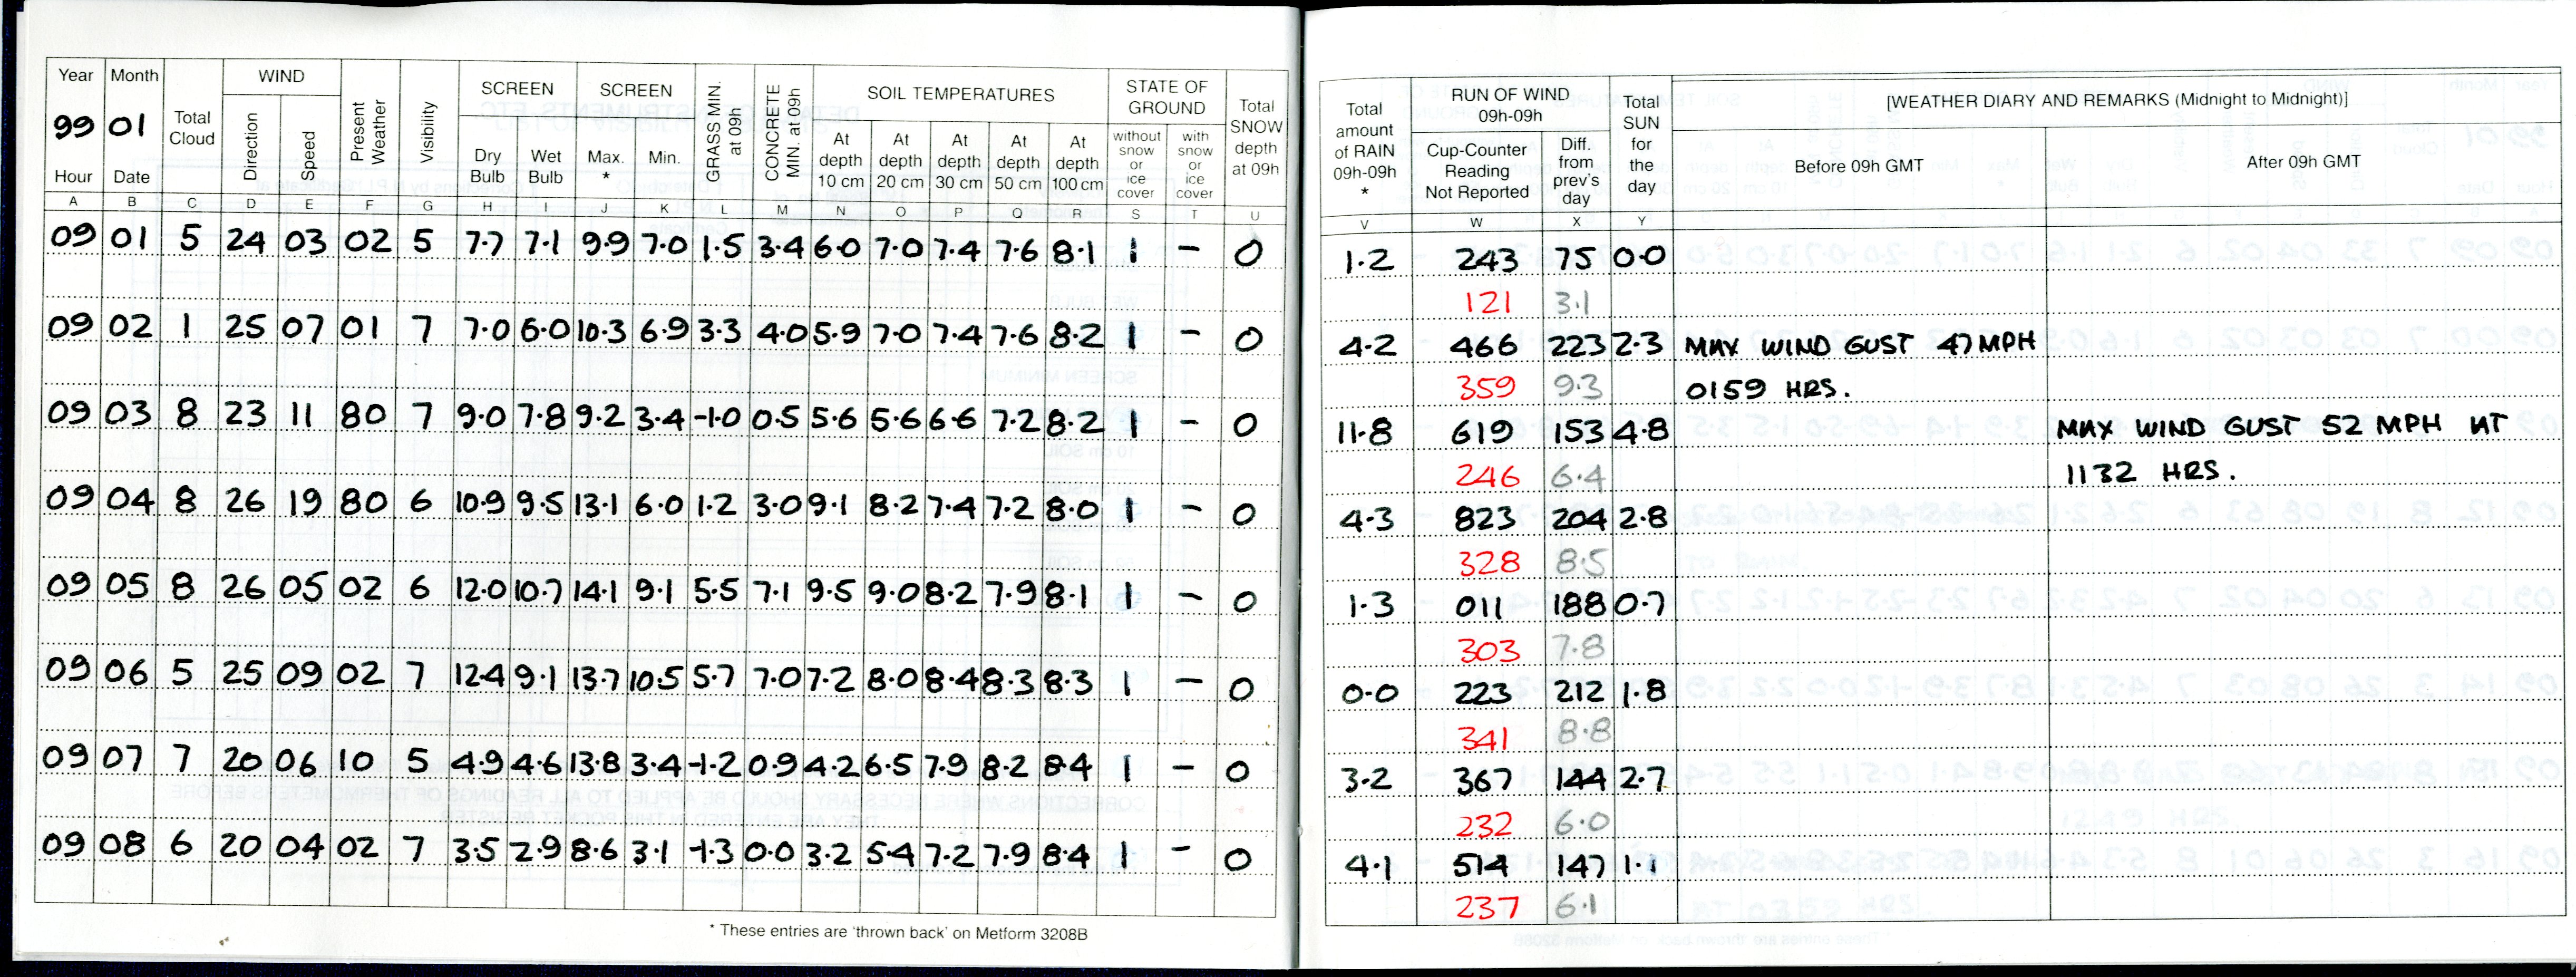 Year Month WIND SCREEN SCREEN SOIL TEMPERATURES STATE OF GROUND
99 01 Total Cloud Direction Speed Present Weather Visibility Dry Bulb Wet Bulb Max. * Min. GRASS MIN. at 09h CONCRETE MIN. at 09h At depth 10 cm At depth 20 cm At depth 30 cm At depth 50 cm At depth 100 cm without snow or ice cover with snow or ice cover Total SNOW depth at 09h
Hour Date
A B C D E F G H I J K L M N O P Q R S T U
09 01 5 24 03 02 5 7.7 7.1 9.9 7.0 1.5 3.4 6.0 7.0 7.4 7.6 8.1 1 – 0
09 02 1 25 07 01 7 7.0 6.0 10.3 6.9 3.3 4.0 5.9 7.0 7.4 7.6 8.2 1 – 0
09 03 8 23 11 80 7 9.0 7.8 9.2 3.4 -1.0 0.5 5.6 5.6 6.6 7.2 8.2 1 – 0
09 04 8 26 19 80 6 10.9 9.5 13.1 6.0 1.2 3.0 9.1 8.2 7.4 7.2 8.0 1 – 0
09 05 8 26 05 02 6 12.0 10.7 14.1 9.1 5.5 7.1 9.5 9.0 8.2 7.9 8.1 1 – 0
09 06 5 25 09 02 7 12.4 9.1 13.7 10.5 5.7 7.0 7.2 8.0 8.4 8.3 8.3 1 – 0
09 07 7 20 06 10 5 4.9 4.6 13.8 3.4 -1.2 0.9 4.2 6.5 7.9 8.2 8.4 1 – 0
09 08 6 20 04 02 7 3.5 2.9 8.6 3.1 -1.3 0.0 3.2 5.4 7.2 7.9 8.4 1 – 0
* These entries are 'thrown back' on Metform 3208B
Total amount of RAIN 09h-09h * RUN OF WIND 09h-09h Total SUN for the day [WEATHER DIARY AND REMARKS (Midnight to Midnight)]
Cup-Counter Reading Not Reported Diff. from prev's day Before 09h GMT After 09h GMT
V W X Y
1.2 243 75 0.0
121 3.1
4.2 466 223 2.3 MAX WIND GUST 47 MPH
359 9.3 0159 HRS.
11.8 619 153 4.8 MAX WIND GUST 52 MPH AT
246 6.4 1132 HRS.
4.3 823 204 2.8
328 8.5
1.3 011 188 0.7
303 7.8
0.0 223 212 1.8
341 8.8
3.2 367 144 2.7
232 6.0
4.1 514 147 1.1
237 6.1